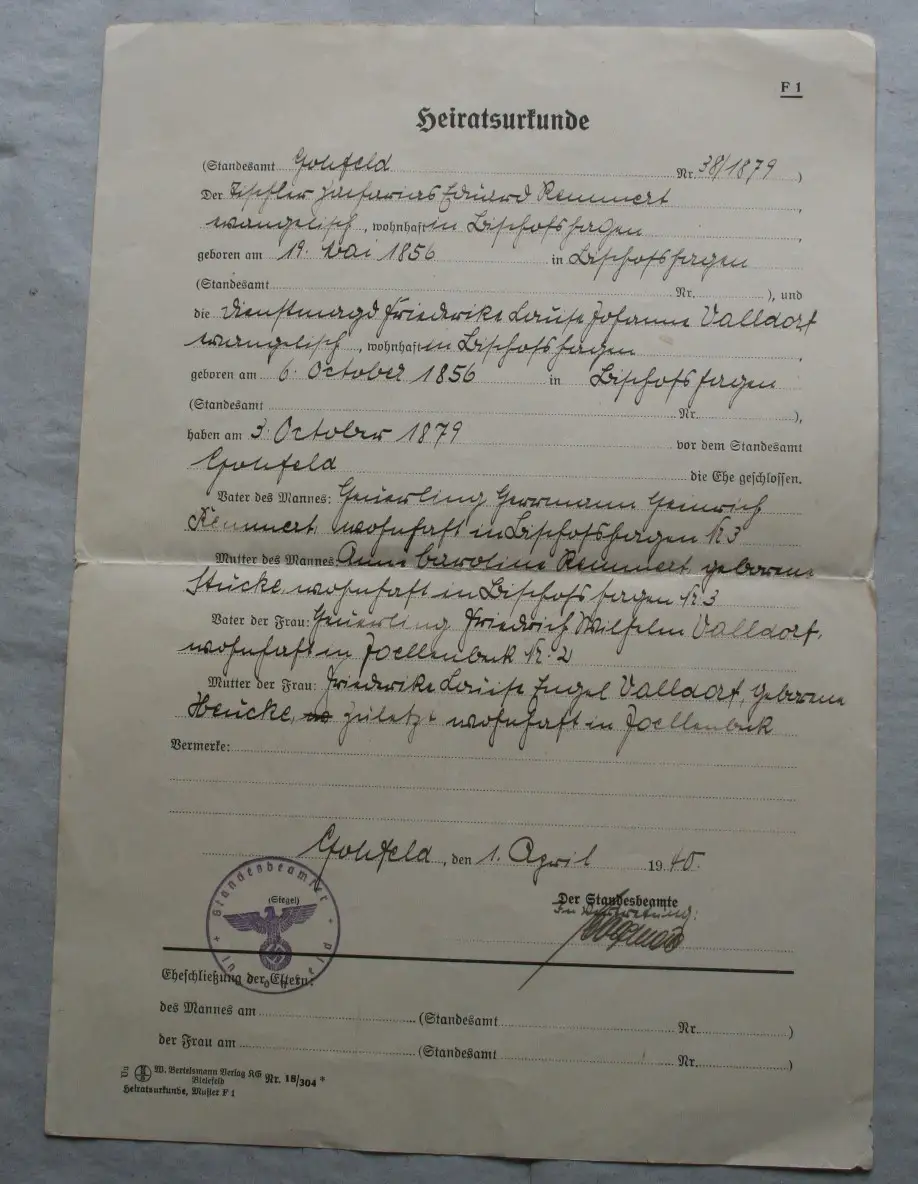 F 1
Heiratsurkunde
(Standesamt Gohfeld Nr. 38/1879 )
Der Tischler Zacharias Eduard Remmert
evangelisch, wohnhaft in Bischofshagen
geboren am 19. Mai 1856 in Bischofshagen
(Standesamt Nr. ), und
die Dienstmagd Friederike Louise Johanne Valldorf
evangelisch, wohnhaft in Bischofshagen
geboren am 6. October 1856 in Bischofshagen
(Standesamt Nr. ),
haben am 3. October 1879 vor dem Standesamt
Gohfeld die Ehe geschlossen.
Vater des Mannes: Heuerling Herrmann Heinrich
Remmert, wohnhaft in Bischofshagen N 3
Mutter des Mannes: Anne Caroline Remmert geborene
Stucke, wohnhaft in Bischofshagen N 3
Vater der Frau: Heuerling Friedrich Wilhelm Valldorf,
wohnhaft in Joellenbek N. 2
Mutter der Frau: Friederike Louise Engel Valldorf, geborene
Heucke, zuletzt wohnhaft in Joellenbek
Vermerke:
Gohfeld, den 1. April 1940.
Standesbeamter
(Siegel)
Der Standesbeamte
In Vertretung:
Eheschließung der Eltern:
des Mannes am (Standesamt Nr. )
der Frau am (Standesamt Nr. )
W. Bertelsmann Verlag KG
Bielefeld
Nr. 18/304 *
Heiratsurkunde, Muster F 1